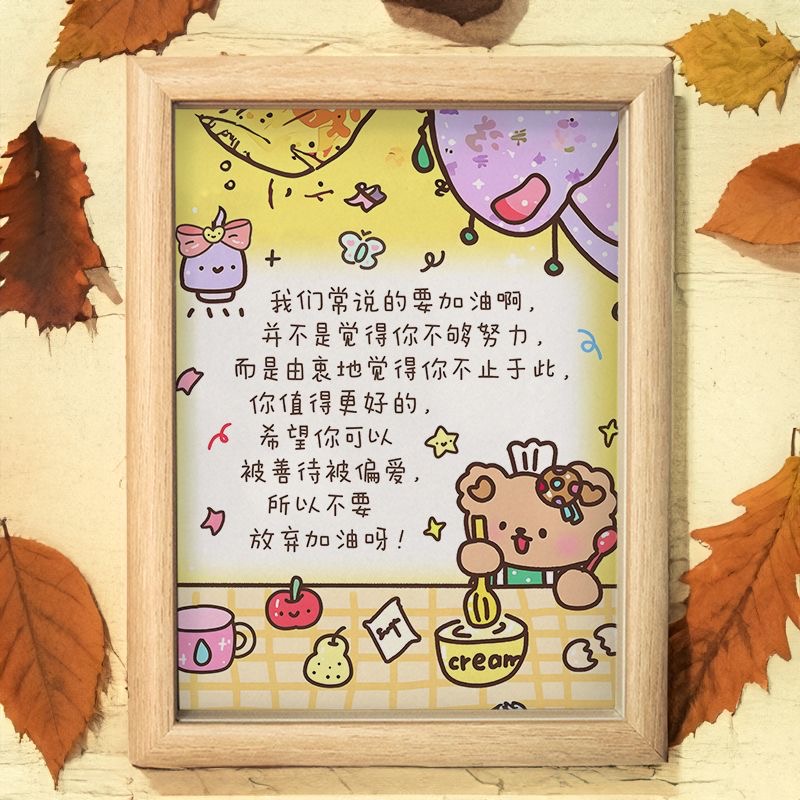 我们常说的要加油啊，
并不是觉得你不够努力，
而是由衷地觉得你不止于此，
你值得更好的，
希望你可以
被善待被偏爱，
所以不要
放弃加油呀！
cream